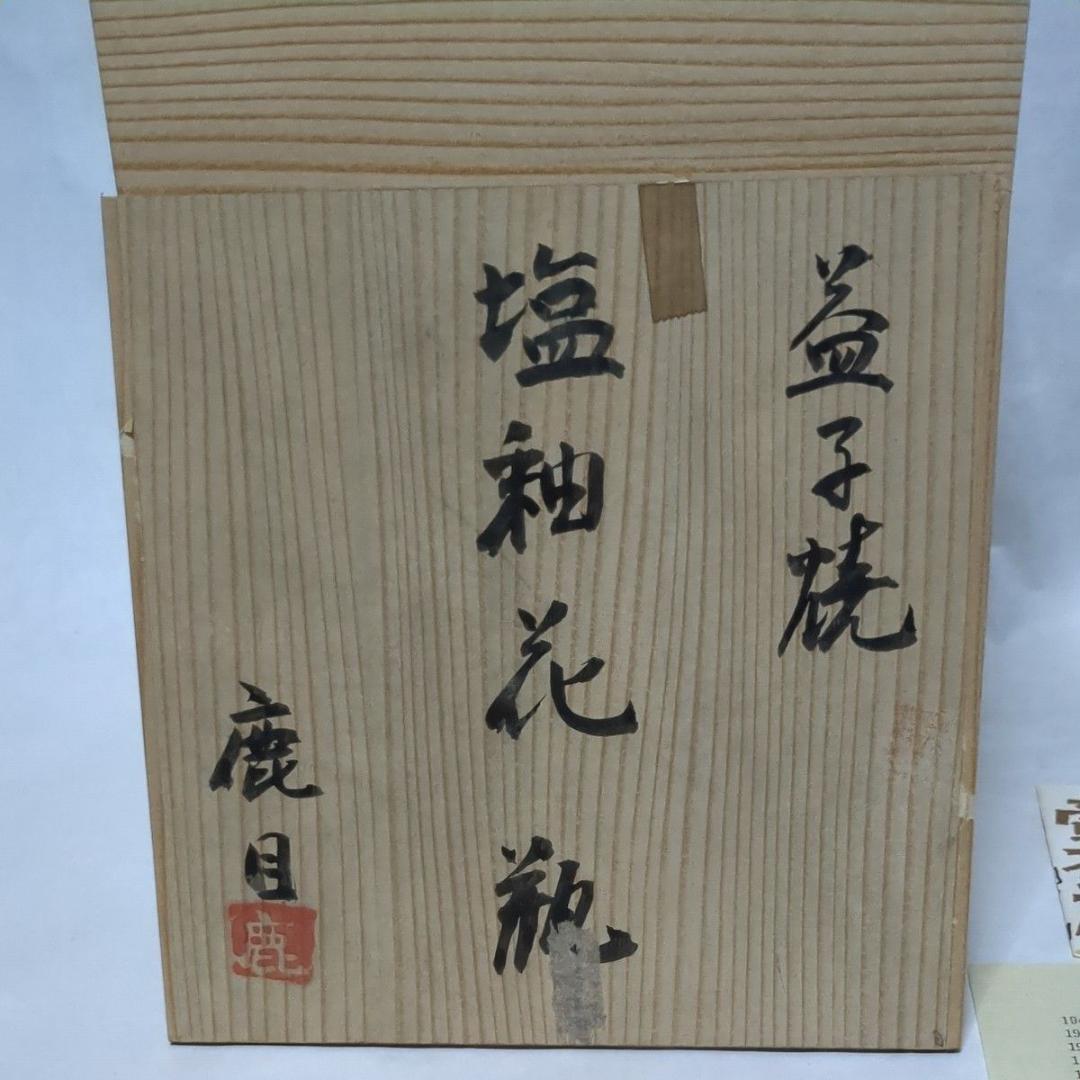 益子焼
塩釉花瓶
鹿目
鹿